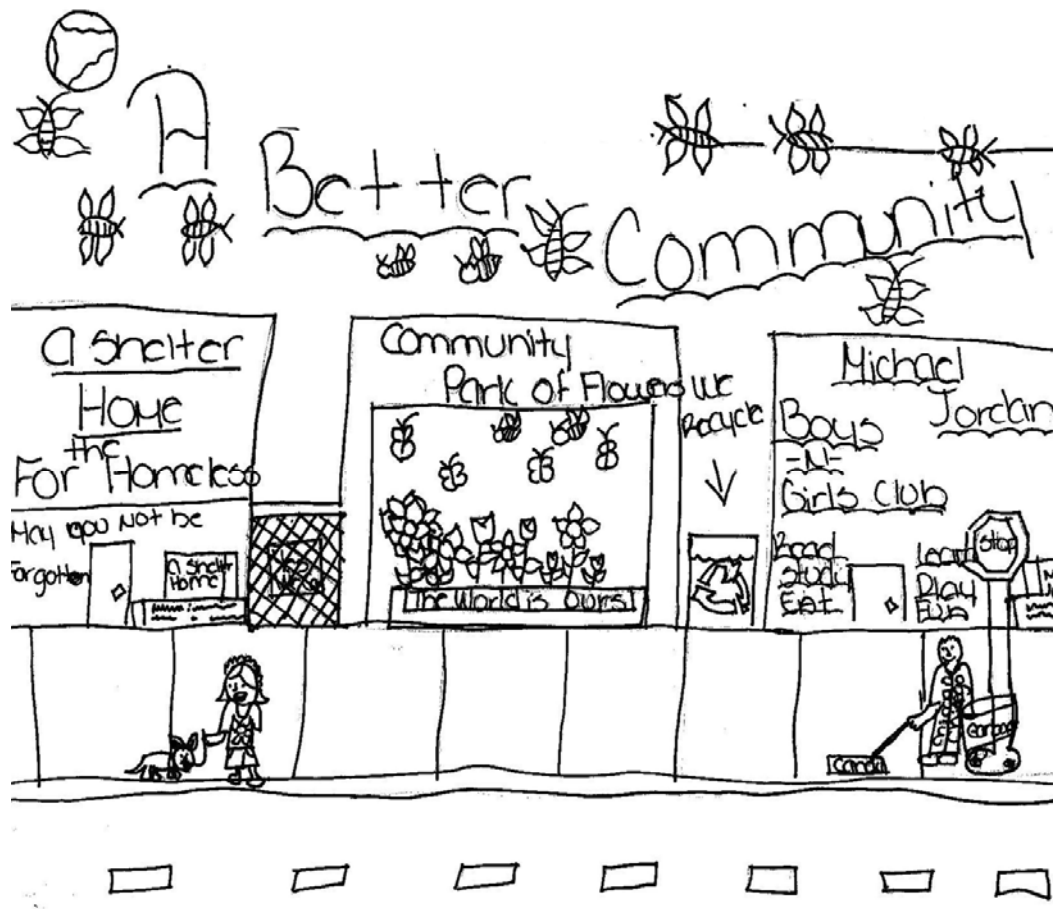 A
Better
Community
A Shelter
Home
the
For Homeless
May you Not be
Forgotten
a Shelter
Home
Community
Park of Flowers
The World is Ours!
We
Recycle
Michael
Jordan
Boys
-N-
Girls Club
Read
Study
Eat
Learn
Play
Fun
Stop
Garbage